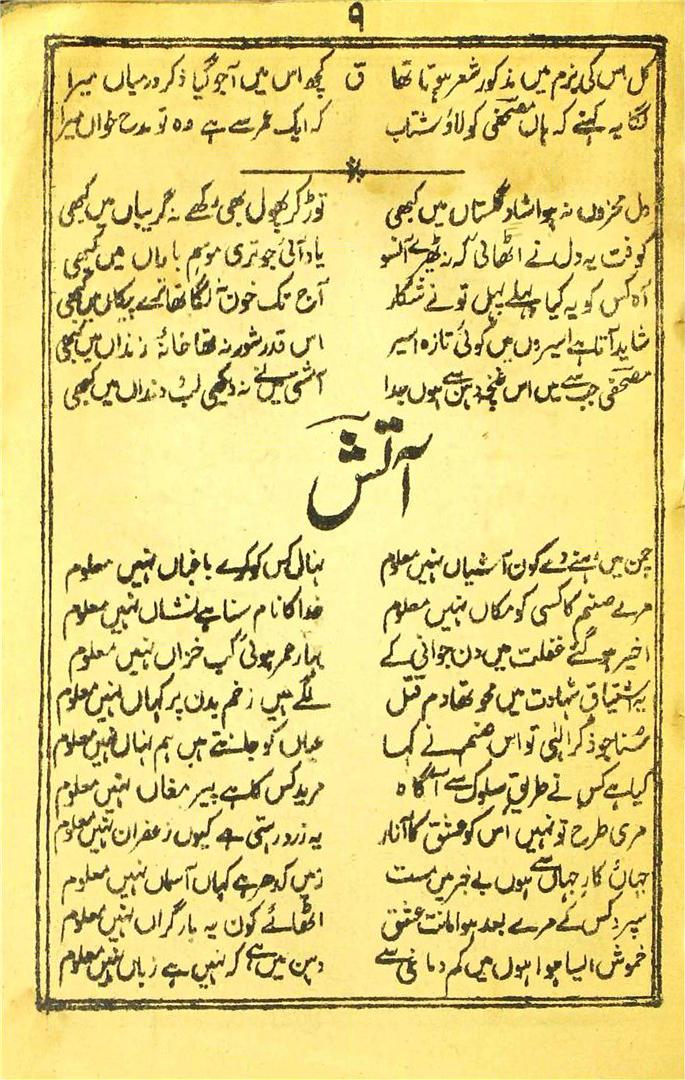 ۹
کل اس کی بزم میں مذکور شعر ہوتا تھا ق کچھ اس میں آ جو گیا ذکر درمیاں میرا
لگا یہ کہنے کہ ہاں مصحفی کو لاؤ شتاب کہ ایک عمر سے ہے وہ تو مدح خواں میرا
دل محزوں نہ ہوا شاد گلستاں میں کبھی توڑ کر پھول بھی رکھے نہ گریباں میں کبھی
کوفت یہ دل نے اٹھائی کہ نہ ٹھہرے آنسو یاد آئی جو تری موسم باراں میں کبھی
آہ کس کو یہ کیا پہلے پہل تو نے شکار آج تک خون نہ لگا تھا ترے پیکاں میں کبھی
شاید آتا ہے اسیروں میں کوئی تازہ اسیر اس قدر شور نہ تھا خانۂ زنداں میں کبھی
مصحفی جب سے میں اس غنچہ دہن سے ہوں جدا آشتی میں نے نہ دیکھی لب و دنداں میں کبھی
آتش
چمن میں رہنے دے کون آشیاں نہیں معلوم نہال کس کو کرے باغباں نہیں معلوم
مرے صنم کا کسی کو مکاں نہیں معلوم خدا کا نام سنا ہے نشاں نہیں معلوم
اخیر ہو گئے غفلت میں دن جوانی کے بہار عمر ہوئی کب خزاں نہیں معلوم
یہ اشتیاق شہادت میں محو تھا دم قتل لگے ہیں زخم بدن پر کہاں نہیں معلوم
سنا جو ذکر الٰہی تو اس صنم نے کہا عیاں کو جانتے ہیں ہم نہاں نہیں معلوم
کیا ہے کس نے طریق سلوک سے آگاہ مرید کس کا ہے پیر مغاں نہیں معلوم
مری طرح تو نہیں اس کو عشق کا آزار یہ زرد رہتی ہے کیوں زعفران نہیں معلوم
جہان کار جہاں سے ہوں بے خبر میں مست زمیں کدھر ہے کہاں آسماں نہیں معلوم
سپرد کس کے مرے بعد ہو امانت عشق اٹھائے کون یہ بار گراں نہیں معلوم
خموش ایسا ہوا ہوں میں کم دماغی سے دہن میں ہے کہ نہیں ہے زباں نہیں معلوم